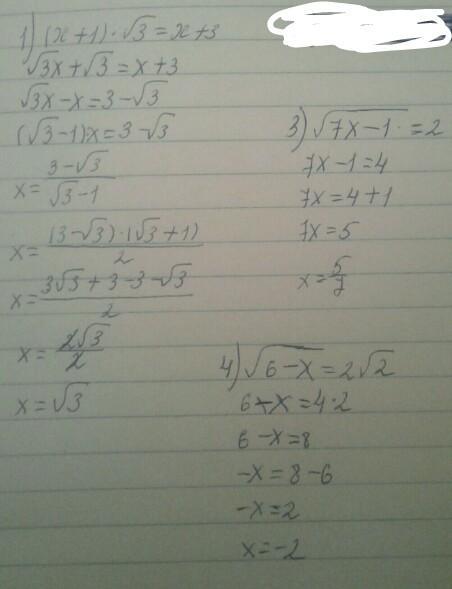 1) (x+1)·√3=x+3
√3x+√3=x+3
√3x-x=3-√3
(√3-1)x=3-√3
x=(3-√3)/(√3-1)
x=((3-√3)·(√3+1))/2
x=(3√3+3-3-√3)/2
x=2√3/2
x=√3
3) √(7x-1)=2
7x-1=4
7x=4+1
7x=5
x=5/7
4) √(6-x)=2√2
6-x=4·2
6-x=8
-x=8-6
-x=2
x=-2